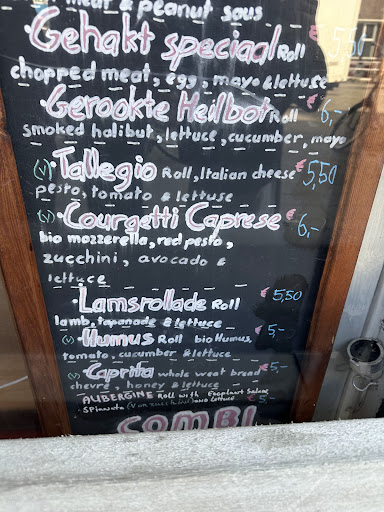 meat & peanut saus
Gehakt speciaal Roll € 5,50
chopped meat, egg, mayo & lettuse
Gerookte Heilbot Roll € 6,-
smoked halibut, lettuce, cucumber, mayo
(v) Tallegio Roll, Italian cheese € 5,50
pesto, tomato & lettuse
(v) Courgetti Caprese € 6,-
bio mozzerella, red pesto,
zucchini, avocado &
lettuce
Lamsrollade Roll € 5,50
lamb, tapanade & lettuce
(v) Humus Roll bio Humus, € 5,-
tomato, cucumber & lettuce
(v) Caprita whole weat bread € 5,-
chevre, honey & lettuce
AUBERGINE Roll with Eggplant Salade
Spianata € 5,-
COMBI